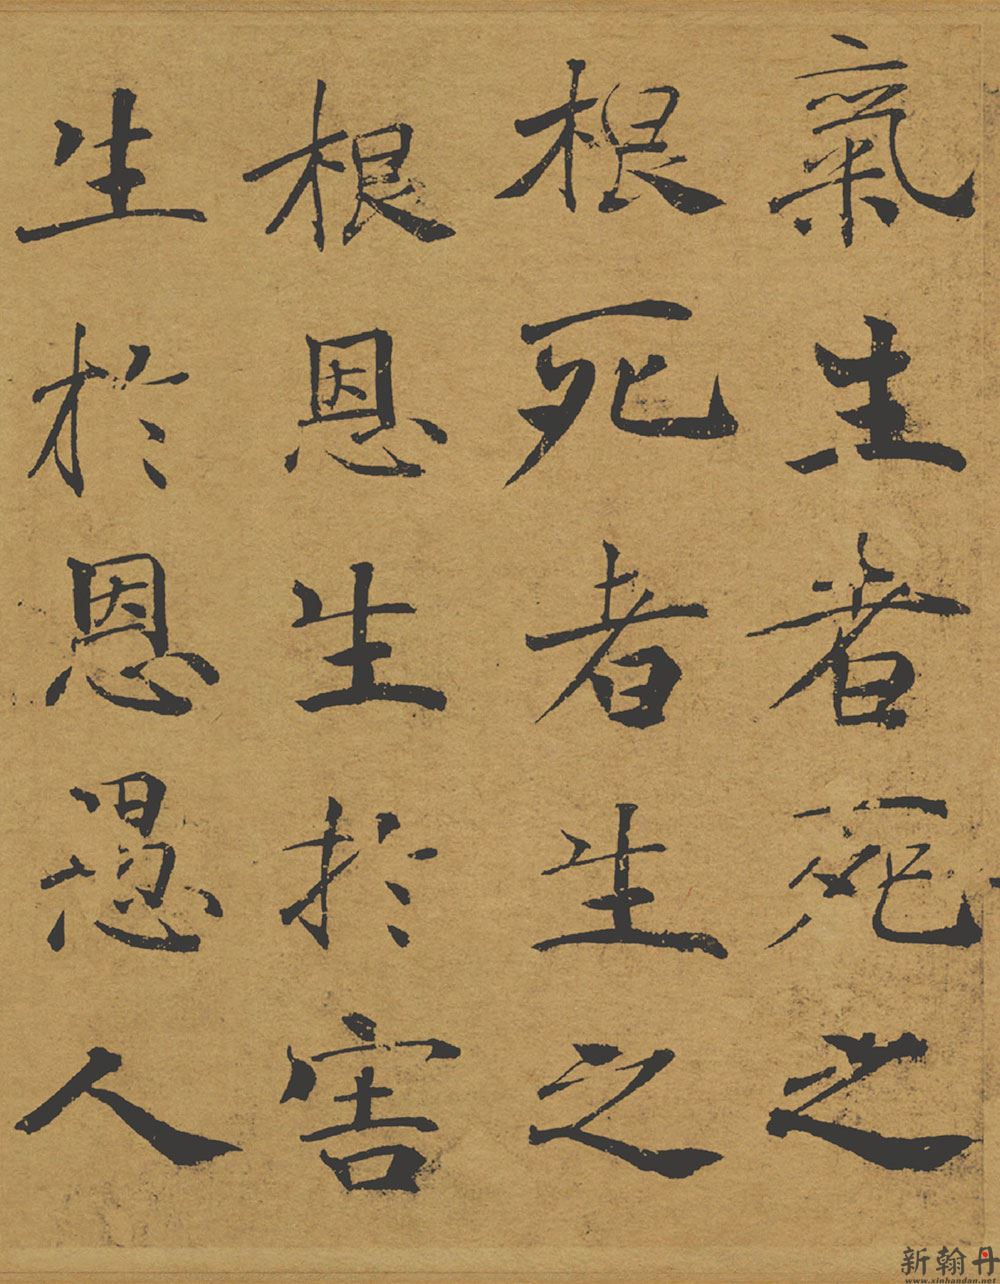 氣生者死之
根死者生之
根恩生於害
生於恩愚人
新翰丹
www.xinhandan.net